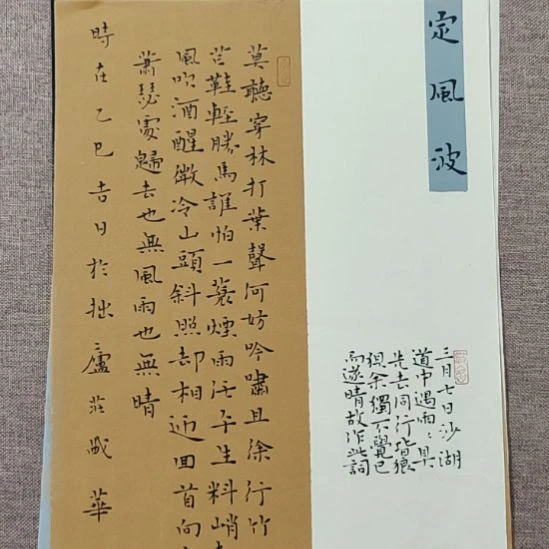 定風波
三月七日沙湖
道中遇雨〻具
先去同行皆狼
狽余獨不覺已
而遂晴故作此詞
莫聽穿林打葉聲何妨吟嘯且徐行竹
芒鞋輕勝馬誰怕一蓑煙雨任平生料峭
風吹酒醒微冷山頭斜照却相迎回首向
蕭瑟處歸去也無風雨也無晴
時在乙巳吉日於拙廬莊華